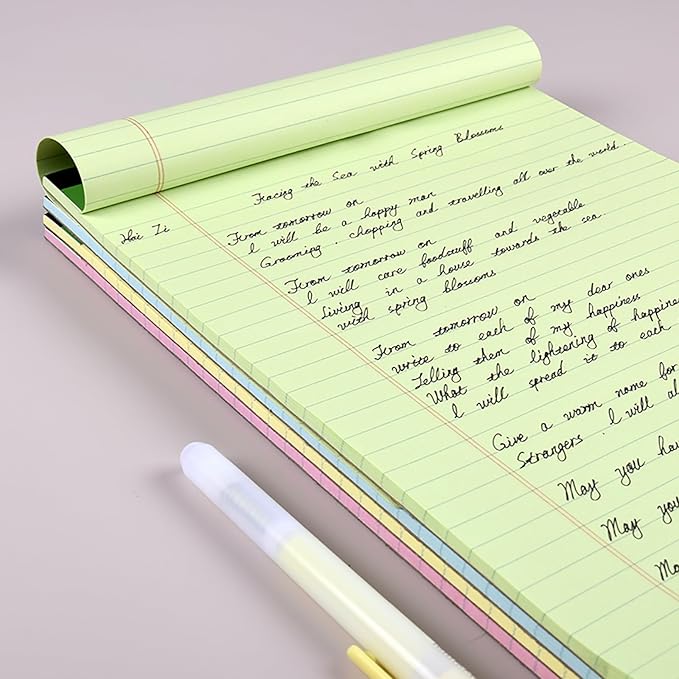 Facing the Sea with Spring Blossoms
Hai Zi
From tomorrow on
I will be a happy man
Grooming. chopping and travelling all over the world
From tomorrow on
I will care foodstuff and vegetable
Living in a house towards the sea.
with spring blossoms
From tomorrow on
write to each of my dear ones
Telling them of my happiness
What the lightening of happine
I will spread it to each
Give a warm name for
Strangers. I will al
May you hav
May you
Ma